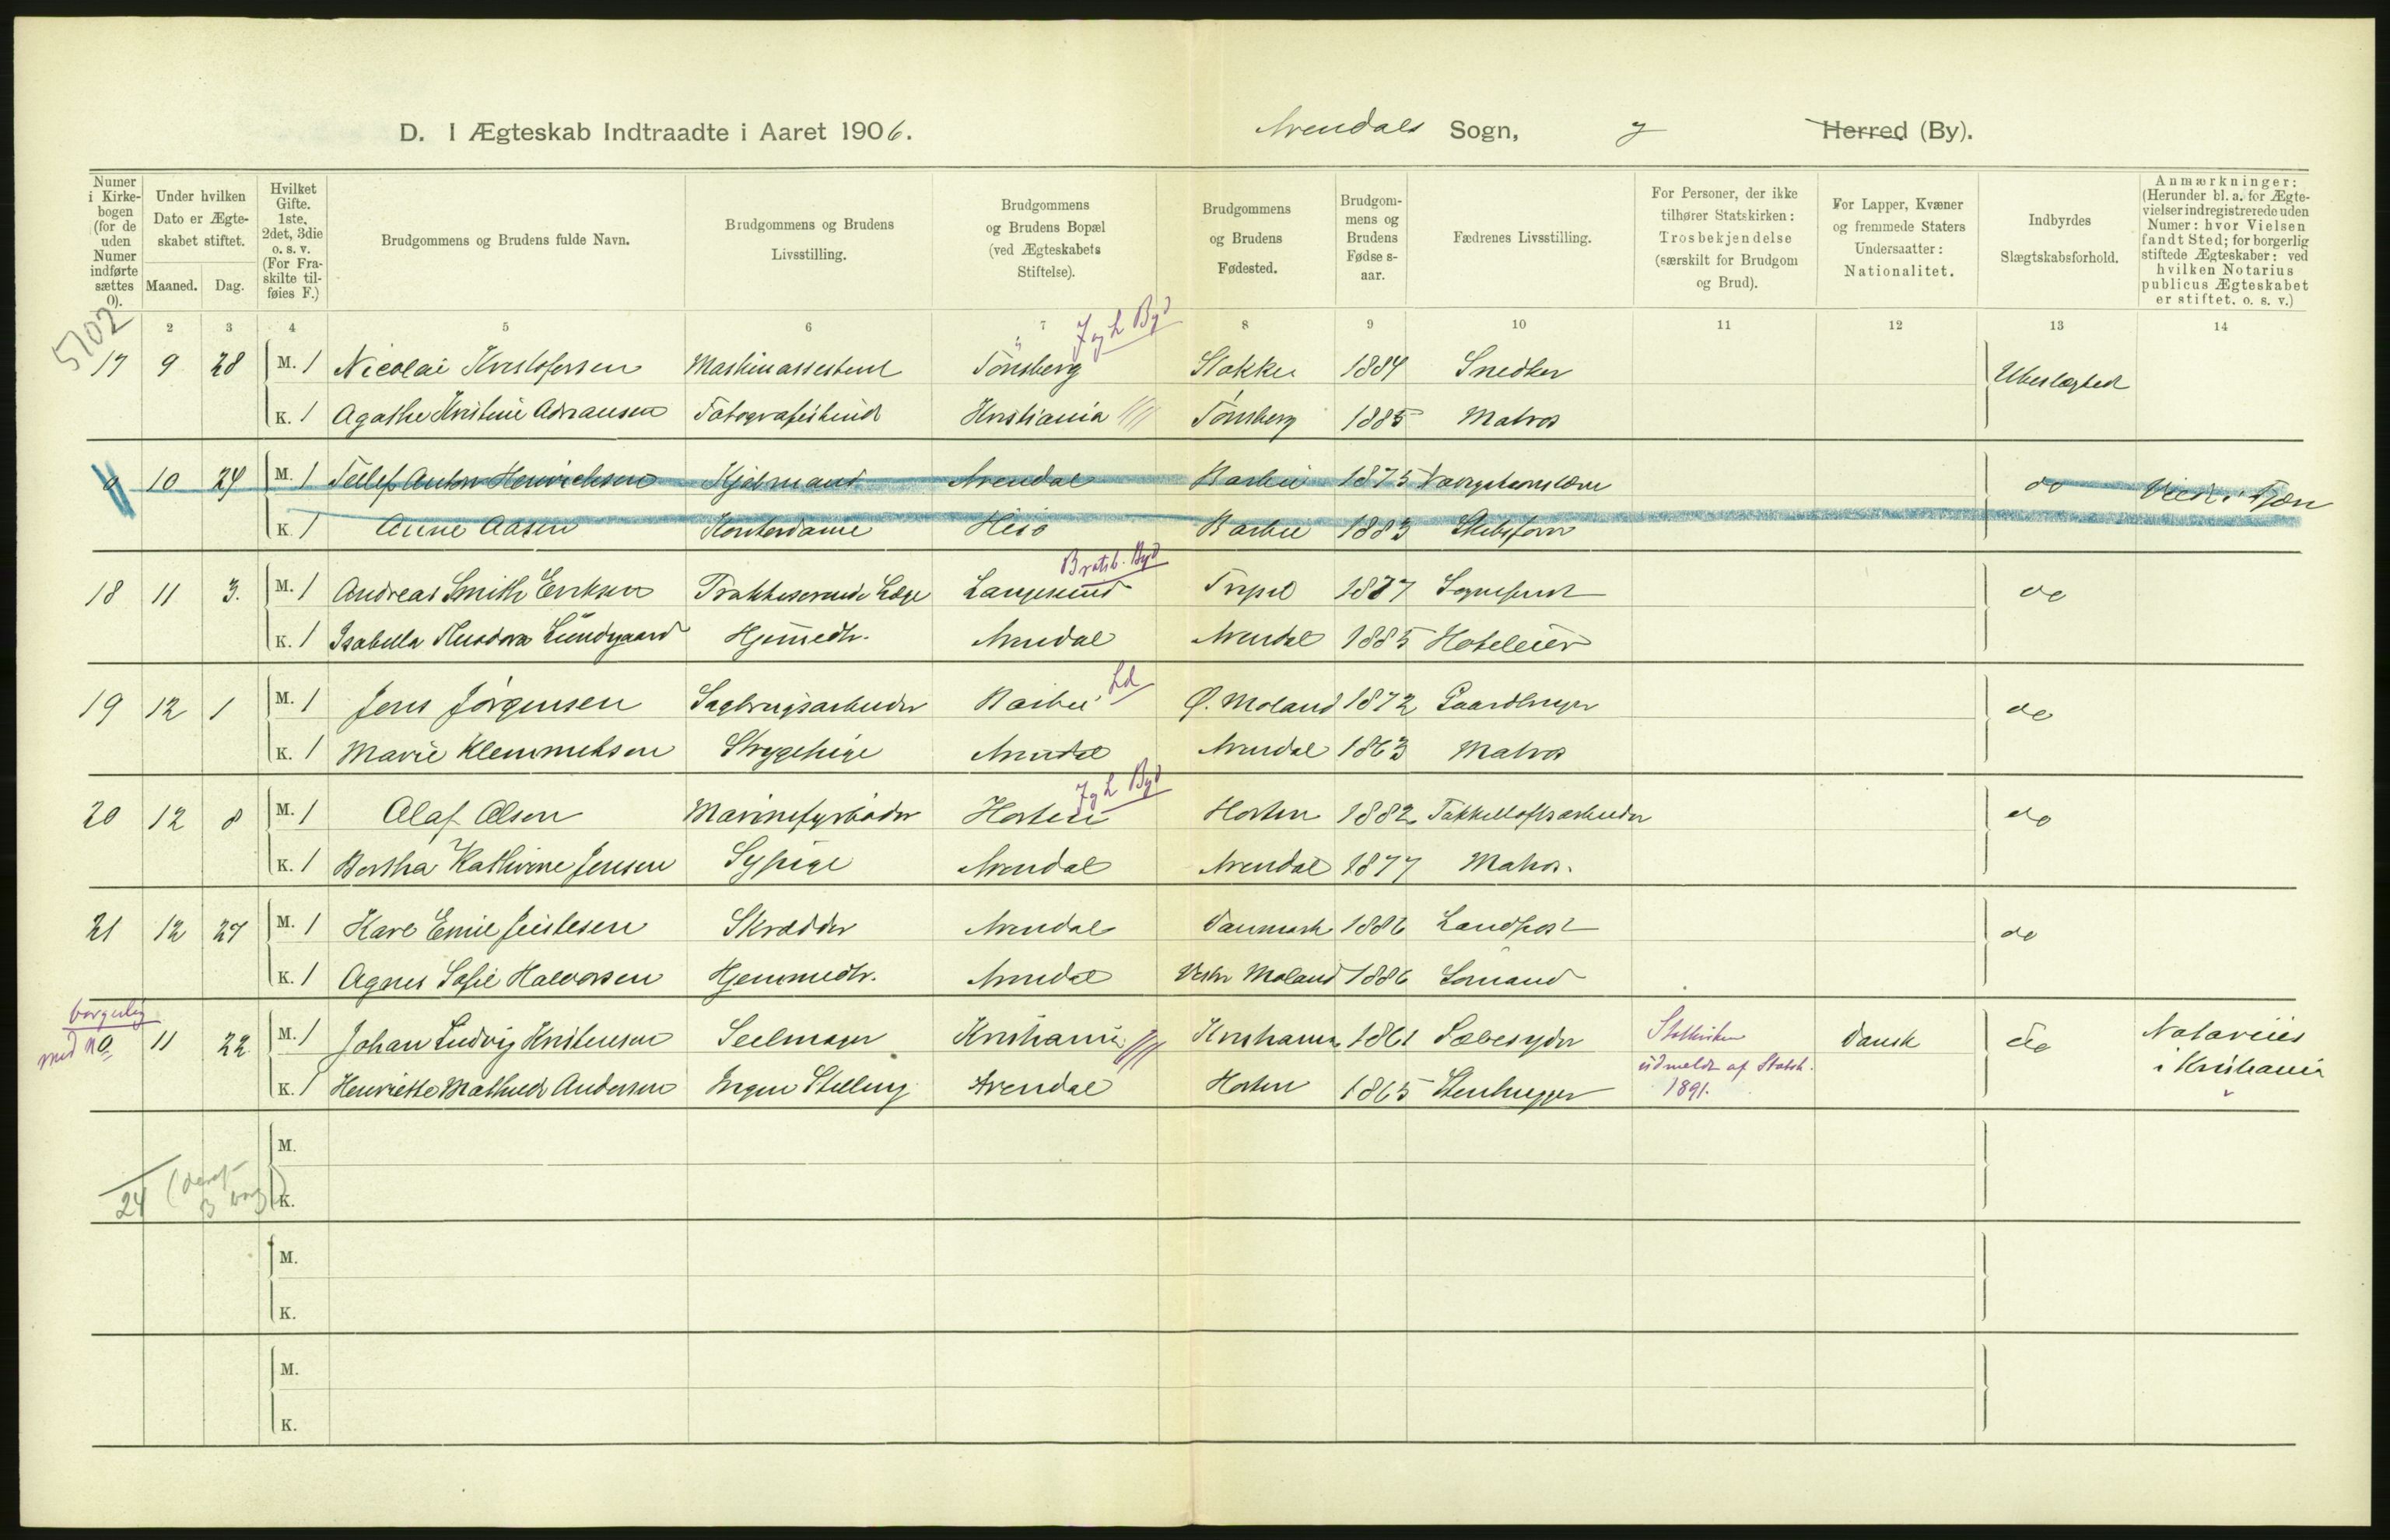 D. I Ægteskab Indtraadte i Aaret 1906. Arendals Sogn, Herred (By).
Numer i Kirkebogen (for de uden Numer indførte sættes 0).
Under hvilken Dato er Ægteskabet stiftet.
Maaned. Dag.
Hvilket Gifte. 1ste, 2det, 3die o. s. v. (For Fraskilte tilføies F.)
Brudgommens og Brudens fulde Navn.
Brudgommens og Brudens Livsstilling.
Brudgommens og Brudens Bopæl (ved Ægteskabets Stiftelse).
Brudgommens og Brudens Fødested.
Brudgommens og Brudens Fødselsaar.
Fædrenes Livsstilling.
For Personer, der ikke tilhører Statskirken: Trosbekjendelse (særskilt for Brudgom og Brud).
For Lapper, Kvæner og fremmede Staters Undersaatter: Nationalitet.
Indbyrdes Slægtskabsforhold.
Anmærkninger: (Herunder bl. a. for Ægtevielser indregistrerede uden Numer: hvor Vielsen fandt Sted; for borgerlig stiftede Ægteskaber: ved hvilken Notarius publicus Ægteskabet er stiftet. o. s. v.)
5702
2 3 4 5 6 7 8 9 10 11 12 13 14
J & L Byd
17 9 28 M. 1 Nicolai Kristofersen Maskinassistent Tönsberg Stokke 1884 Snedker Ubeslægted
K. 1 Agathe Kristine Adriansen Fotografistinde Kristiania Tönsberg 1885 Matros
0 10 24 M. 1 Tellef Anton Henrichsen Arendal Barbu 1875 do Viet i
K. 1 Anne Aasen Kontordame Hisö Barbu 1883 Skibsförer
Bratsb. Byd
18 11 3. M. 1 Andreas Smith Eriksen Praktiserende Læge Langesund 1877 Sogneprest do
K. 1 Isabella Theodora Lundgaard Hjemmedtr. Arendal Arendal 1885 Hoteleier
Ld
19 12 1 M. 1 Jens Jörgensen Sagbrugsarbeider Barbu Ø. Moland 1872 Gaardbruger do
K. 1 Marie Klemmetsen Strygepige Arendal Arendal 1863 Matros
J & L Byd
20 12 8 M. 1 Olaf Olsen Marinefyrböder Horten Horten 1882 Takkelloftsarbeider do
K. 1 Bertha Kathrine Jensen Sypige Arendal Arendal 1877 Matros.
21 12 27 M. 1 Karl Emil Skrædder Arendal Danmark 1886 Landpost do
K. 1 Agnes Sofie Halvorsen Hjemmedtr. Arendal Vestre Moland 1886 Sömand
borgerlig
med no 0 11 22 M. 1 Johan Ludvig Kristensen Seilmager Kristiania Kristiania 1861 Sæbesyder Dansk do Notarius
udmeldt af Statsk. i Kristiania
K. 1 Henriette Mathilde Andersen Ingen Stilling Arendal Horten 1865 Stenhugger 1891.
M.
24 (deraf 3 borg) K.
M.
K.
M.
K.